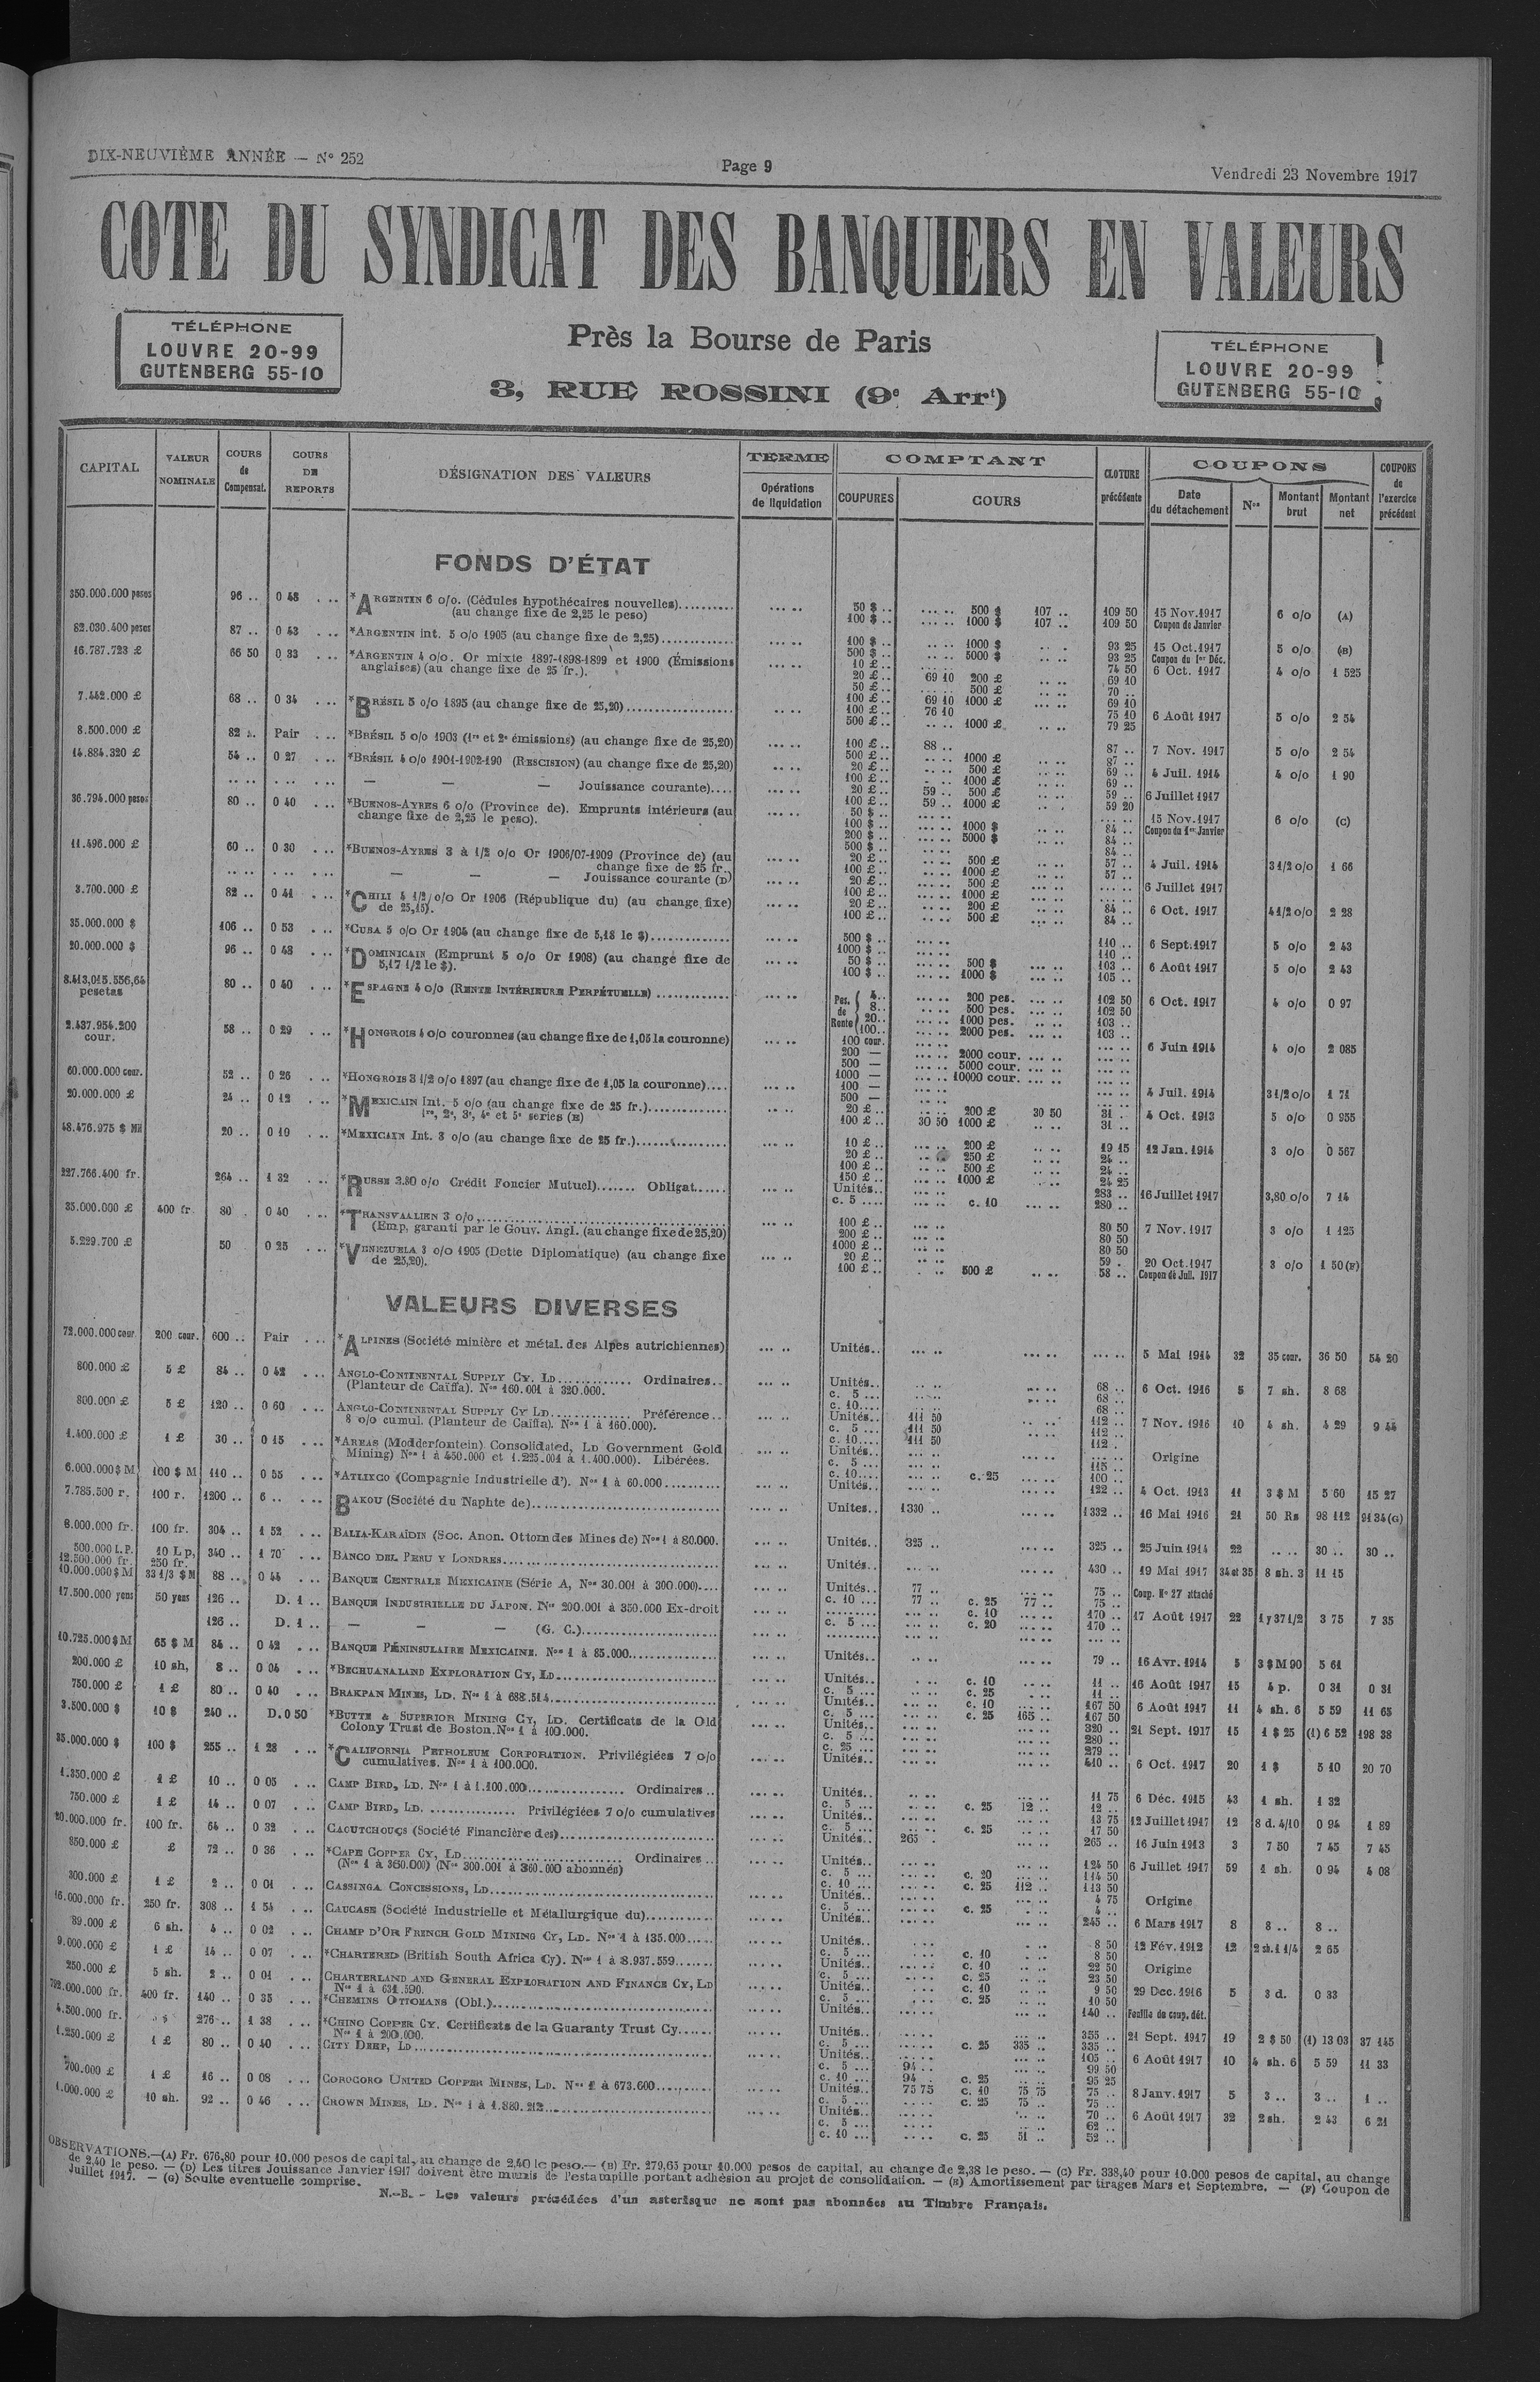 DIX-NEUVIÈME ANNÉE — N° 252
Page 9
Vendredi 23 Novembre 1917
COTE DU SYNDICAT DES BANQUIERS EN VALEURS
TÉLÉPHONE
LOUVRE 20-99
GUTENBERG 55-10
Près la Bourse de Paris
3, RUE ROSSINI (9e Arrt)
TÉLÉPHONE
LOUVRE 20-99
GUTENBERG 55-10
CAPITAL VALEUR NOMINALE COURS de Compensat. COURS DE REPORTS DÉSIGNATION DES VALEURS TERME Opérations de liquidation COMPTANT COUPURES COURS CLOTURE précédente COUPONS Date du détachement Nos Montant brut Montant net COUPONS de l'exercice précédent
FONDS D'ÉTAT
350.000.000 pesos 96 .. 0 48 *ARGENTIN 6 o/o. (Cédules hypothécaires nouvelles) 50 $ .. 500 $ 107 .. 109 50 15 Nov. 1917 6 o/o (A)
(au change fixe de 2,25 le peso) 100 $ .. 1000 $ 107 .. 109 50 Coupon de Janvier
82.030.400 pesos 87 .. 0 43 *ARGENTIN int. 5 o/o 1905 (au change fixe de 2,25) 100 $ .. 1000 $ 93 25 15 Oct. 1917 5 o/o (B)
500 $ .. 5000 $ 93 25 Coupon du 1er Déc.
16.787.723 £ 66 50 0 33 *ARGENTIN 4 o/o. Or mixte 1897-1898-1899 et 1900 (Émissions 10 £ .. 74 50 6 Oct. 1917 4 o/o 1 525
anglaises) (au change fixe de 25 fr.). 20 £ .. 69 10 200 £ 69 10
50 £ .. 500 £ 70 ..
100 £ .. 69 10 1000 £ 69 10
7.442.000 £ 68 .. 0 34 *BRÉSIL 5 o/o 1895 (au change fixe de 25,20) 100 £ .. 76 10 75 10 6 Août 1917 5 o/o 2 54
500 £ .. 1000 £ 79 25
8.500.000 £ 82 .. Pair *BRÉSIL 5 o/o 1903 (1re et 2e émissions) (au change fixe de 25,20) 100 £ .. 88 .. 87 .. 7 Nov. 1917 5 o/o 2 54
500 £ .. 1000 £ 87 ..
14.884.320 £ 54 .. 0 27 *BRÉSIL 4 o/o 1901-1902-190 (RESCISION) (au change fixe de 25,20) 20 £ .. 500 £ 69 .. 4 Juil. 1914 4 o/o 1 90
100 £ .. 1000 £ 69 ..
— — — Jouissance courante) 20 £ .. 59 .. 500 £ 59 .. 6 Juillet 1917
100 £ .. 59 .. 1000 £ 59 20
36.794.000 pesos 80 .. 0 40 *BUENOS-AYRES 6 o/o (Province de). Emprunts intérieurs (au 50 $ .. 15 Nov. 1917 6 o/o (C)
change fixe de 2,25 le peso). 100 $ .. 1000 $ 84 .. Coupon du 1er Janvier
200 $ .. 5000 $ 84 ..
500 $ .. 84 ..
11.496.000 £ 60 .. 0 30 *BUENOS-AYRES 3 à 1/2 o/o Or 1906/07-1909 (Province de) (au 20 £ .. 500 £ 57 .. 4 Juil. 1914 3 1/2 o/o 1 66
change fixe de 25 fr.. 100 £ .. 1000 £ 57 ..
— — — Jouissance courante (D) 20 £ .. 500 £ 6 Juillet 1917
100 £ .. 1000 £
3.700.000 £ 82 .. 0 41 *CHILI 4 1/2 o/o Or 1906 (République du) (au change fixe) 20 £ .. 200 £ 84 .. 6 Oct. 1917 4 1/2 o/o 2 28
de 25,15). 100 £ .. 500 £ 84 ..
35.000.000 $ 106 .. 0 53 *CUBA 5 o/o Or 1904 (au change fixe de 5,18 le $) 500 $ .. 110 .. 6 Sept. 1917 5 o/o 2 43
1000 $ .. 110 ..
20.000.000 $ 96 .. 0 48 *DOMINICAIN (Emprunt 5 o/o Or 1908) (au change fixe de 50 $ .. 500 $ 103 .. 6 Août 1917 5 o/o 2 43
5,17 1/2 le $). 100 $ .. 1000 $ 105 ..
8.413,015.556,64 pesetas 80 .. 0 40 *ESPAGNE 4 o/o (RENTE INTÉRIEURE PERPÉTUELLE) Pes. de Rente 4.. 200 pes. 102 50 6 Oct. 1917 4 o/o 0 97
8.. 500 pes. 102 50
20.. 1000 pes. 103 ..
100.. 2000 pes. 103 ..
2.437.954.200 cour. 58 .. 0 29 *HONGROIS 4 o/o couronnes (au change fixe de 1,05 la couronne) 100 cour. 6 Juin 1914 4 o/o 2 085
200 — 2000 cour.
500 — 5000 cour.
1000 — 10000 cour.
60.000.000 cour. 52 .. 0 26 *HONGROIS 3 1/2 o/o 1897 (au change fixe de 1,05 la couronne) 100 — 4 Juil. 1914 3 1/2 o/o 1 71
500 —
20.000.000 £ 24 .. 0 12 *MEXICAIN Int. 5 o/o (au change fixe de 25 fr.) 20 £ .. 200 £ 30 50 31 .. 4 Oct. 1913 5 o/o 0 955
1re, 2e, 3e, 4e et 5e series (E) 100 £ .. 30 50 1000 £ 31 ..
48.476.975 $ Mil 20 .. 0 10 *MEXICAIN Int. 3 o/o (au change fixe de 25 fr.) 10 £ .. 200 £ 19 15 12 Jan. 1914 3 o/o 0 567
20 £ .. 250 £ 24 ..
100 £ .. 500 £ 24 ..
150 £ .. 1000 £ 24 25
227.766.400 fr. 264 .. 1 32 *RUSSE 3.80 o/o Crédit Foncier Mutuel) Obligat. Unités.. 283 .. 16 Juillet 1917 3,80 o/o 7 14
c. 5 c. 10 280 ..
35.000.000 £ 400 fr. 80 0 40 *TRANSVAALIEN 3 o/o 100 £ .. 80 50 7 Nov. 1917 3 o/o 1 125
(Emp. garanti par le Gouv. Angl. (au change fixe de 25,20) 200 £ .. 80 50
1000 £ .. 80 50
5.229.700 £ 50 0 25 *VENEZUELA 3 o/o 1905 (Dette Diplomatique) (au change fixe 20 £ .. 59 . 20 Oct. 1917 3 o/o 1 50 (F)
de 25,20). 100 £ .. 500 £ 58 .. Coupon de Juil. 1917
VALEURS DIVERSES
72.000.000 cour. 200 cour. 600 .. Pair *ALPINES (Société minière et métal. des Alpes autrichiennes) Unités.. 5 Mai 1914 32 35 cour. 36 50 54 20
800.000 £ 5 £ 84 .. 0 42 ANGLO-CONTINENTAL SUPPLY CY. LD Ordinaires.. Unités.. 68 .. 6 Oct. 1916 5 7 sh. 8 68
(Planteur de Caïffa). Nos 160.001 à 320.000. c. 5 68 ..
c. 10 68 ..
800.000 £ 5 £ 120 .. 0 60 ANGLO-CONTINENTAL SUPPLY CY LD Préférence.. Unités.. 111 50 112 .. 7 Nov. 1916 10 4 sh. 4 29 9 44
8 o/o cumul. (Planteur de Caiffa). Nos 1 à 160.000). c. 5 111 50 112 ..
c. 10 111 50 112 .
1.400.000 £ 1 £ 30 .. 0 15 *AREAS (Modderfontein) Consolidated, LD Government Gold Unités.. Origine
Mining) Nos 1 à 450.000 et 1.225.001 à 1.400.000). Libérées. c. 5 115 ..
c. 10 c. 25 100 ..
6.000.000 $ M 100 $ M 110 .. 0 55 *ATLIXCO (Compagnie Industrielle d'). Nos 1 à 60.000 Unités.. 122 .. 4 Oct. 1913 11 3 $ M 5 60 15 27
7.785.500 r. 100 r. 1200 .. 6 .. BAKOU (Société du Naphte de) Unites.. 1330 .. 1332 .. 16 Mai 1916 21 50 Rs 98 112 91 34 (G)
8.000.000 fr. 100 fr. 304 .. 1 52 BALIA-KARAÏDIN (Soc. Anon. Ottom des Mines de) Nos 1 à 80.000. Unités 325 .. 325 .. 25 Juin 1914 22 30 .. 30 ..
500.000 L.P. 12.500.000 fr. 10 L p, 250 fr. 340 .. 1 70 BANCO DEL PERU Y LONDRES Unités.. 430 .. 19 Mai 1917 34 et 35 8 sh. 3 11 15
10.000.000 $ M 33 1/3 $ M 88 .. 0 44 BANQUE CENTRALE MEXICAINE (Série A, Nos 30.001 à 300.000) Unités.. 77 .. 75 .. Coup. No 27 attaché
c. 10 77 .. c. 25 77 .. 75 ..
17.500.000 yens 50 yens 126 .. D. 1 .. BANQUE INDUSTRIELLE DU JAPON. Nos 200.001 à 350.000 Ex-droit c. 10 170 .. 17 Août 1917 22 1 y 37 1/2 3 75 7 35
c. 5 c. 20 170 ..
126 .. D. 1 .. — — — (G. C.)
10.725.000 $ M 65 $ M 84 .. 0 42 BANQUE PÉNINSULAIRE MEXICAINE. Nos 1 à 85.000 Unités.. 79 .. 16 Avr. 1914 5 3 $ M 90 5 61
200.000 £ 10 sh, 8 .. 0 04 *BECHUANALAND EXPLORATION CY, LD Unités.. c. 10 11 .. 16 Août 1917 15 4 p. 0 31 0 31
c. 5 c. 25 11 ..
750.000 £ 1 £ 80 .. 0 40 BRAKPAN MINES, LD. Nos 1 à 688.514 Unités.. c. 10 167 50 6 Août 1917 11 4 sh. 6 5 59 11 65
c. 5 c. 25 165 .. 167 50
3.500.000 $ 10 $ 240 .. D. 0 50 *BUTTE & SUPERIOR MINING CY, LD. Certificats de la Old Unités.. 320 .. 21 Sept. 1917 15 1 $ 25 (1) 6 52 198 38
Colony Trust de Boston. Nos 1 à 100.000. c. 5 280 ..
c. 25 279 ..
35.000.000 $ 100 $ 255 .. 1 28 *CALIFORNIA PETROLEUM CORPORATION. Privilégiées 7 o/o Unités.. 410 .. 6 Oct. 1917 20 1 $ 5 10 20 70
cumulatives. Nos 1 à 100.000.
1.350.000 £ 1 £ 10 .. 0 05 CAMP BIRD, LD. Nos 1 à 1.100.000 Ordinaires .. Unités.. 11 75 6 Déc. 1915 43 1 sh. 1 32
c. 5 c. 25 12 .. 12 ..
750.000 £ 1 £ 14 .. 0 07 CAMP BIRD, LD. Privilégiées 7 o/o cumulatives Unités.. 13 75 12 Juillet 1917 12 8 d. 4/10 0 94 1 89
c. 5 c. 25 17 50
20.000.000 fr. 100 fr. 64 .. 0 32 CAOUTCHOUCS (Société Financière des) Unités 265 . 265 .. 16 Juin 1913 3 7 50 7 45 7 45
850.000 £ £ 72 .. 0 36 *CAPE COPPER CY, LD Ordinaires .. Unités.. 124 50 6 Juillet 1917 59 1 sh. 0 94 4 08
(Nos 1 à 350.000) (Nos 300.001 à 360.000 abonnés) c. 5 c. 20 114 50
c. 10 c. 25 112 .. 113 50
300.000 £ 1 £ 2 .. 0 01 CASSINGA CONCESSIONS, LD Unités.. 4 75 Origine
c. 5 c. 25 4 ..
16.000.000 fr. 250 fr. 308 .. 1 54 CAUCASE (Société Industrielle et Métallurgique du) Unités.. 245 .. 6 Mars 1917 8 8 .. 8 ..
89.000 £ 6 sh. 4 .. 0 02 CHAMP D'OR FRENCH GOLD MINING CY, LD. Nos 1 à 135.000 Unités.. 8 50 12 Fév. 1912 12 2 sh. 1 1/4 2 65
c. 5 c. 10 8 50
9.000.000 £ 1 £ 14 .. 0 07 *CHARTERED (British South Africa Cy). Nos 1 à 8.937.559 Unités.. c. 10 22 50 Origine
c. 5 c. 25 23 50
250.000 £ 5 sh. 2 .. 0 01 CHARTERLAND AND GENERAL EXPLORATION AND FINANCE CY, LD Unités.. c. 10 9 50 29 Dec. 1916 5 3 d. 0 33
Nos 1 à 631.590. c. 5 c. 25 10 50
792.000.000 fr. 400 fr. 140 .. 0 35 *CHEMINS OTTOMANS (Obl.) Unités.. 140 .. Feuille de coup. dét.
4.500.000 fr. $ 276 .. 1 38 *CHINO COPPER CY. Certificats de la Guaranty Trust Cy Unités.. 355 .. 21 Sept. 1917 19 2 $ 50 (1) 13 03 37 145
Nos 1 à 200.000. c. 5 c. 25 335 .. 335 ..
1.250.000 £ 1 £ 80 .. 0 40 CITY DEEP, LD Unités.. 105 .. 6 Août 1917 10 4 sh. 6 5 59 11 33
c. 5 94 .. 99 50
c. 10 94 . c. 25 95 25
700.000 £ 1 £ 16 .. 0 08 COROCORO UNITED COPPER MINES, LD. Nos 1 à 673.600 Unités 75 75 c. 10 75 75 75 .. 8 Janv. 1917 5 3 .. 3 .. 1 ..
c. 5 c. 25 75 .. 75 ..
1.000.000 £ 10 sh. 92 .. 0 46 CROWN MINES, LD. Nos 1 à 1.880.212 Unités.. 70 .. 6 Août 1917 32 2 sh. 2 43 6 21
c. 5 62 ..
c. 10 c. 25 51 .. 52 ..
OBSERVATIONS.—(A) Fr. 676,80 pour 10.000 pesos de capital, au change de 2,40 le peso.— (B) Fr. 279,65 pour 10.000 pesos de capital, au change de 2,38 le peso. — (C) Fr. 338,40 pour 10.000 pesos de capital, au change
de 2,40 le peso. — (D) Les titres Jouissance Janvier 1917 doivent être munis de l'estampille portant adhésion au projet de consolidation. — (E) Amortissement par tirages Mars et Septembre. — (F) Coupon de
Juillet 1917. — (G) Soulte eventuelle comprise.
N.-B. - Les valeurs précédées d'un asterisque ne sont pas abonnées au Timbre Français.